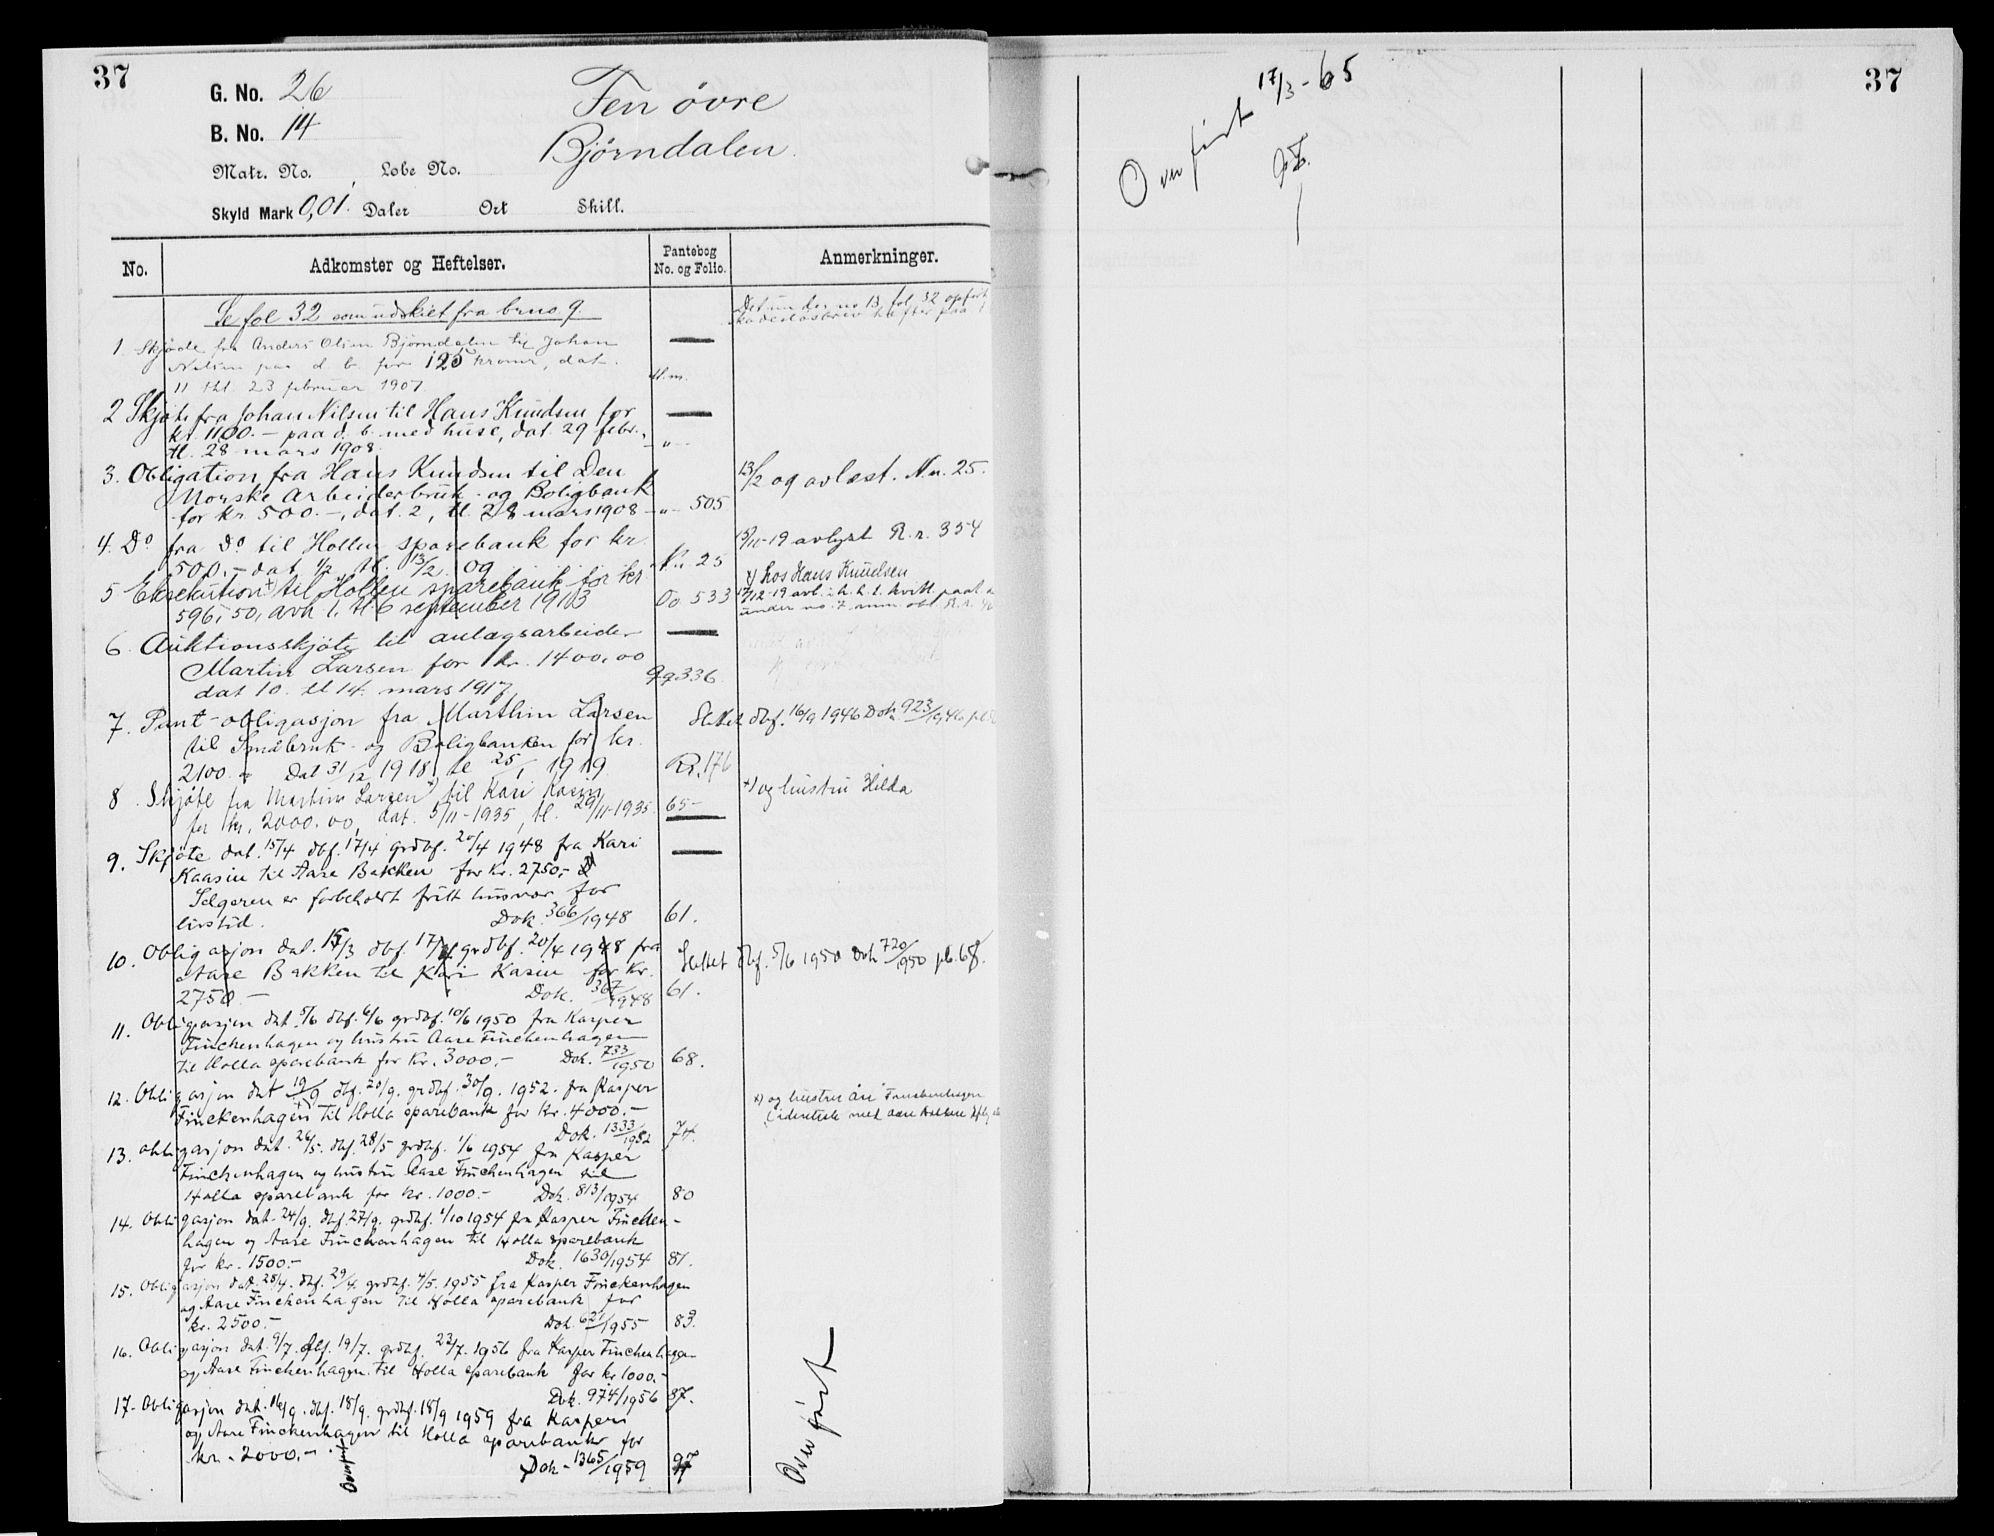 37
G. No. 26
B. No. 14
Fen övre
Björndalen.
Matr. No. , Lobe No.
Skyld Mark 0,01. Daler Ort Skill.
No. Adkomster og Heftelser. Pantebog No. og Folio. Anmerkninger.
Se fol 32 som udskilt fra brno 9. Det under no 13 fol 32 opført
skadesløsbrev hefter paa
1 Skjøde fra Anders Olsen Björndalen til Johan
Nilsen paa d. b. for 125 kroner, dat.
11 thl. 23 februar 1907 M.m.
2 Skjøte fra Johan Nilsen til Hans Knudsen for
kr. 1100.- paa d. b. med huse, dat. 29 febr.,
tl. 28 mars 1908. - " -
3. Obligation fra Hans Knudsen til Den 13/2 og avlæst. N.n. 25.
Norske Arbeiderbruk- og Boligbank
for kr. 500.-, dat. 2, tl. 28 mars 1908 - " - 505
4. Do fra Do til Hollen sparebank for kr. 15/11-19 avlyst R.r. 354
500.- dat 1/2 tl. 13/2 09 N.n 25
5 Eksekution +) til Hollen sparebank for kr x) hos Hans Knudsen
596,50, avh 1, tl 6 september 1913 Oo 533 17/12-19 avl. i h. t. kvitt. paat.
under no. 7 anm. obl. R.r.
6. Auktionsskjøte til anlægsarbeider
Martin Larsen for kr. 1400,00
dat 10. tl 14. mars 1917 Qq 336
7. Pant-obligasjon fra Marthin Larsen Slettet dbf. 16/9 1946 Dok. 923/1946
til Småbruk- og Boligbanken for kr.
2100.- Dat 31/12 1918, tl 25/1 1919 Rr. 176
8. Skjøte fra Martin Larsen +) til Kari Kasin +) og hustru Hilda
for kr. 2000.00, dat. 5/11-1935, tl. 29/11-1935. 65-
9. Skjøte dat. 15/4 dbf. 17/4 grdbf. 20/4 1948 fra Kari
Kaasin til Aase Bakken for Kr. 2750,-
Selgeren er forbeholdt fritt husvær for
livstid. Dok. 366/1948 61.
10. Obligasjon dat. 15/3 dbf. 17/4 grdbf. 20/4 1948 fra Slettet dbf. 5/6 1950 Dok 720/1950 pb. 68.
Aase Bakken til Kari Kasin for Kr.
2750.- Dok. 367/1948 61.
11. Obligasjon dat. 5/6 dbf. 6/6 grdbf. 10/6 1950 fra Kasper
Finckenhagen og hustru Aase Finckenhagen
til Holla sparebank for kr. 3000.- Dok. 733/1950 68.
12. Obligasjon dat 19/9 dbf. 20/9. grdbf. 30/9. 1952. fra Kasper x) og hustru Åse Finckenhagen
Finckenhagen +) til Holla sparebank for kr. 4000.- (identisk med Aase Bakken
Dok. 1333/1952 74.
13. obligasjon dat. 26/5. dbf. 28/5 grdbf. 1/6 1954 fra Kasper
Finckenhagen og hustru Aase Finckenhagen til
Holla sparebank for kr. 1000.- Dok. 813/1954 80
14. Obligasjon dat. 24/9. dbf. 27/9. grdbf. 1/10 1954 fra Kasper Fincken-
hagen og Aase Finckenhagen til Holla sparebank
for kr. 1500.- Dok. 1630/1954 81.
15. Obligasjon dat. 28/4. dbf. 29/4. grdbf. 4/5. 1955 fra Kasper Finckenhagen
og Aase Finckenhagen til Holla sparebank for
kr. 2500.- Dok. 621/1955 83.
16. Obligasjon dat. 9/7. dbf. 19/7. grdbf. 23/7. 1956 fra Kasper Finckenhagen
og Aase Finckenhagen til Holla sparebank for kr 1000.-
Dok. 974/1956 87.
17. Obligasjon dat. 16/9. dbf. 18/9. grdbf. 18/9 1959 fra Kasper
og Aase Finckenhagen til Holla sparebank for
kr. 2000.- Dok. 1365/1959 97
Overført
Overført
37
Overført 17/3-65